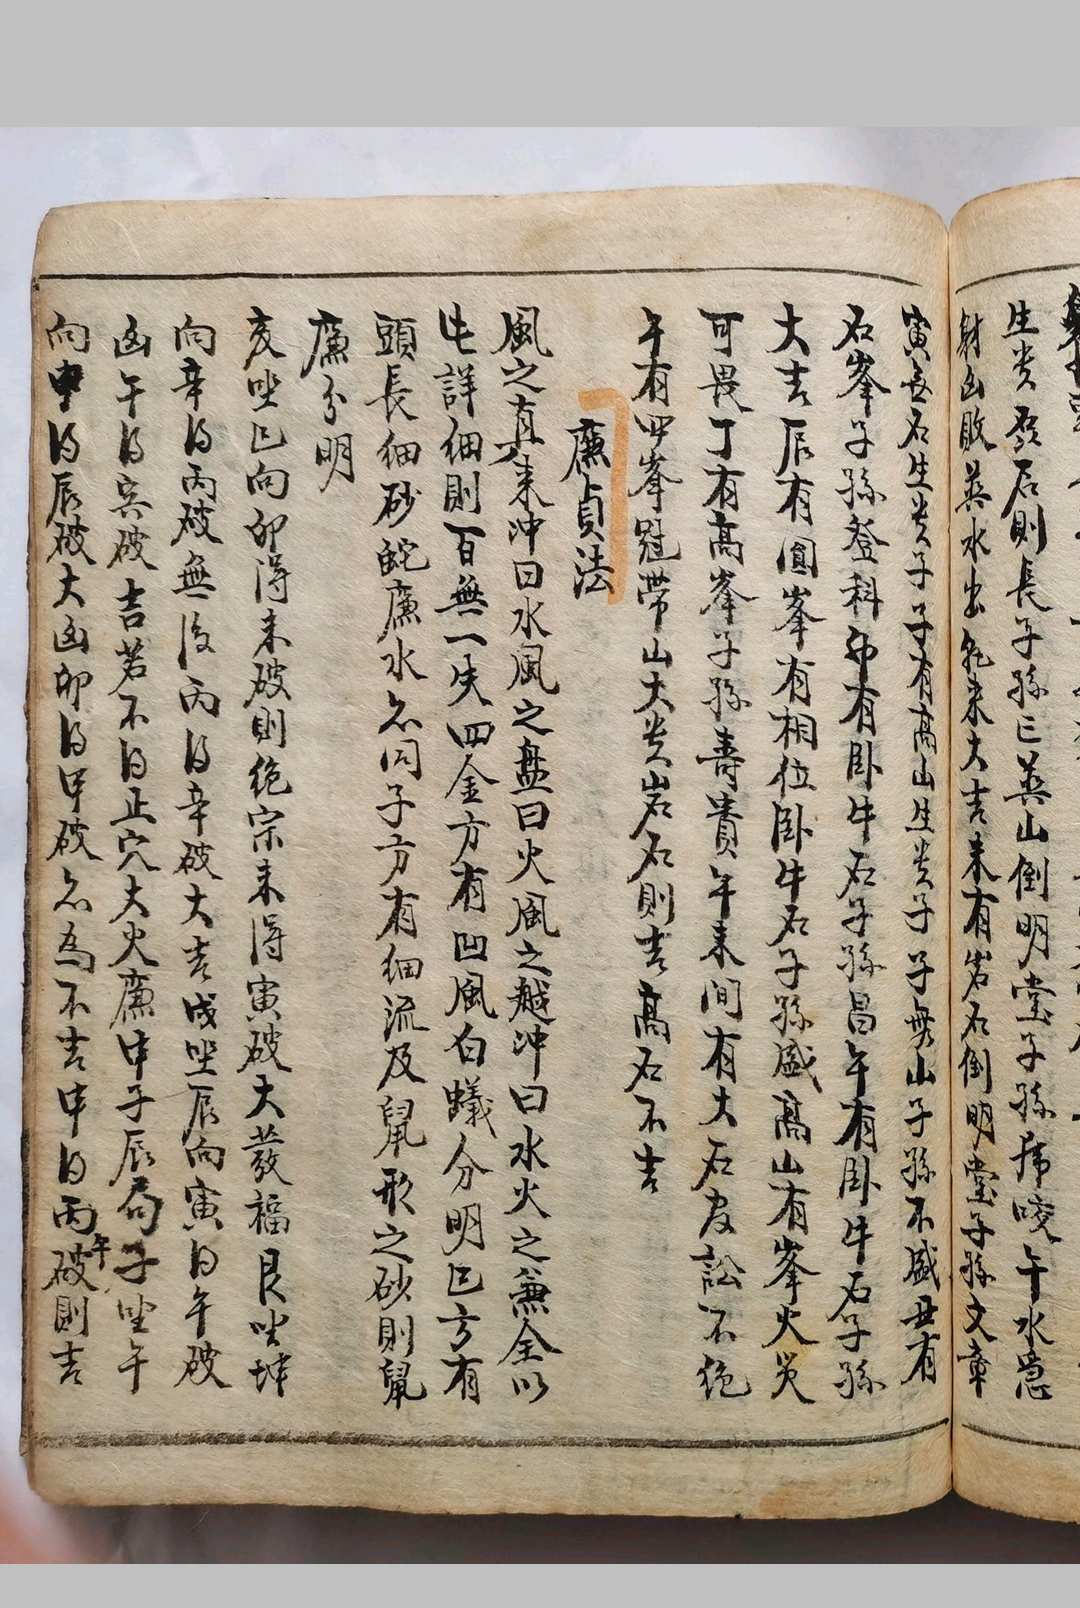 生贵孫石則長子孫亡巽山倒明堂子孫虎咬午水急
射凶敗巽水出乾来大吉未有岩石倒明堂子孫文章
寅無石生贵子子有高山生贵子子無山子孫不盛丑有
石峯子孫登科卯有卧牛石子孫昌午有卧牛石子孫
大吉辰有圓峯有相位卧牛石子孫盛高山有峯火災
可畏丁有高峯子孫壽貴午未间有大石官訟不绝
午有四峯冠帶山大贵岩石則吉高石不吉
廉貞法
風之直来冲曰水風之盘曰火風之越冲曰水火之兼全以
此詳细則百無一失四金方有凹風白蟻分明巳方有
頭長细砂蛇廉水亦同子方有细流及鼠形之砂則鼠
廉分明
亥坐巳向卯得未破則绝宗未得寅破大發福艮坐坤
向辛得丙破無後丙得辛破大吉戌坐辰向寅得午破
凶午得寅破吉若不得正穴大火廉申子辰局子坐午
向申得辰破大凶卯得甲破亦為不吉申得丙午破則吉